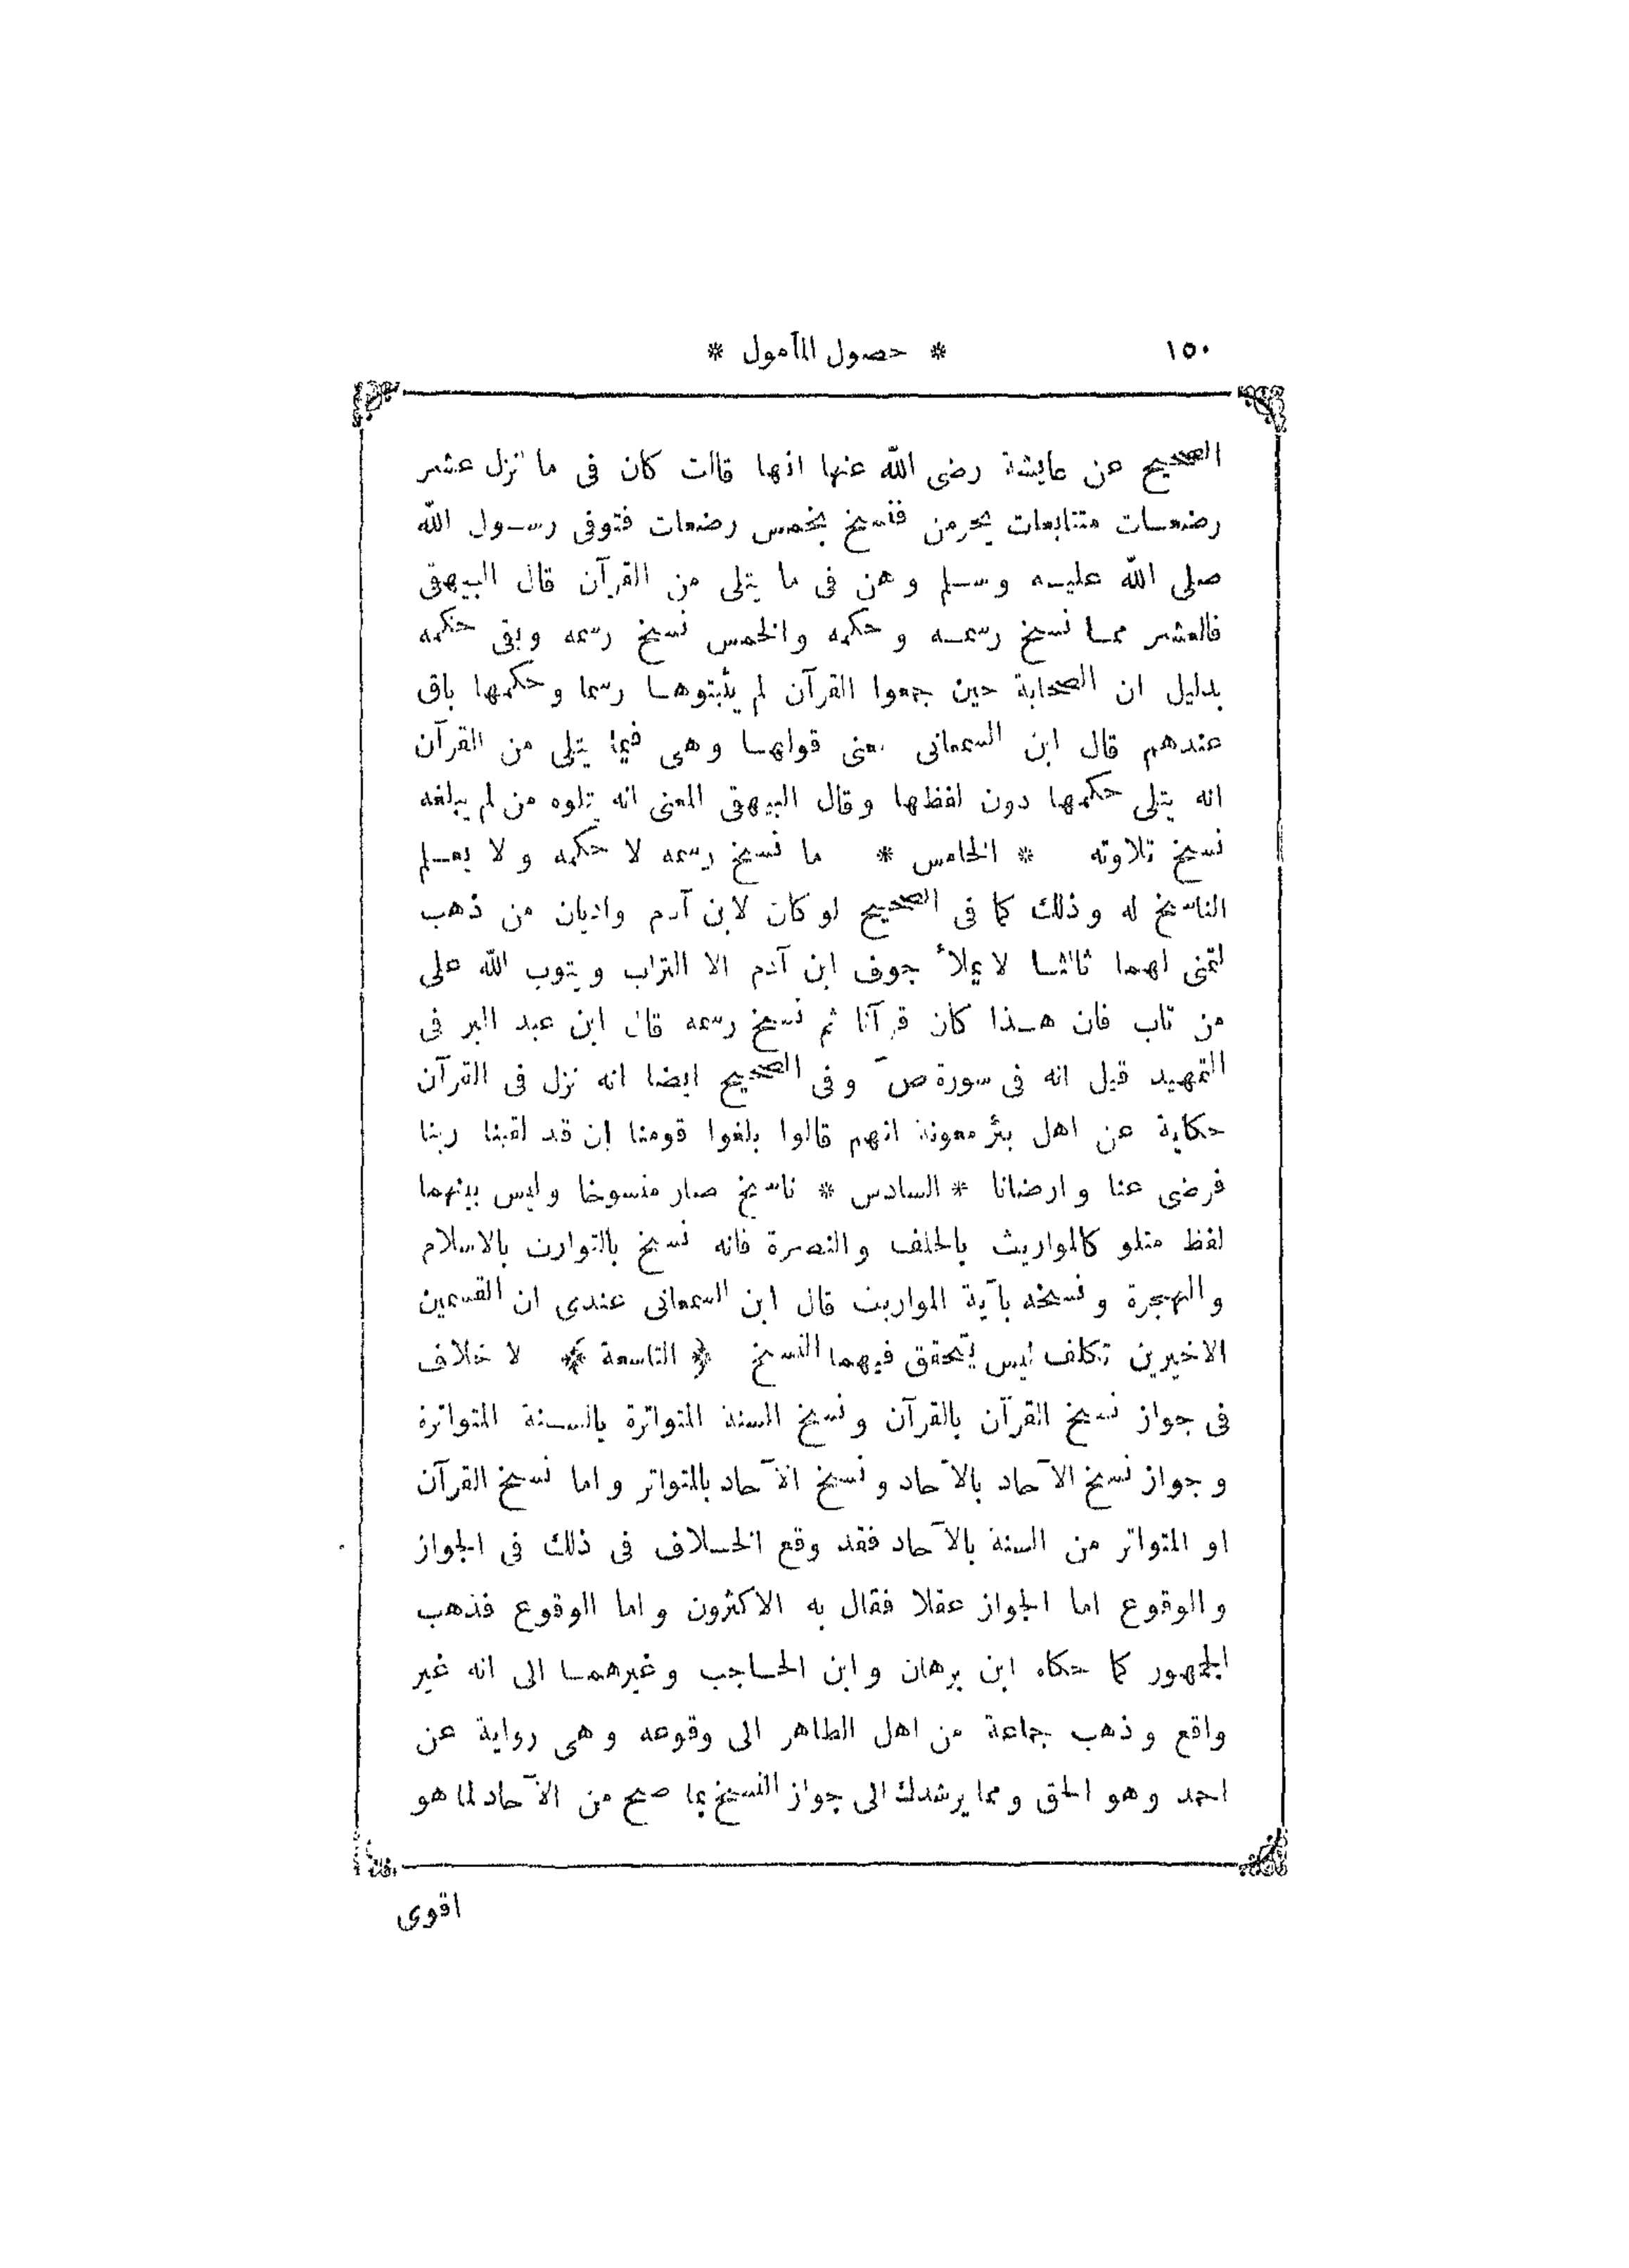 ١٥٠ * حصول المأمول *
الصحيح عن عايشة رضى الله عنها انها قالت كان فى ما نزل عشر
رضعات متتابعات يحرمن فنسخ بخمس رضعات فتوفى رسول الله
صلى الله عليه وسلم وهن فى ما يتلى من القرآن قال البيهقى
فالعشر مما نسخ رسمه وحكمه والخمس نسخ رسمه وبقى حكمه
بدليل ان الصحابة حين جمعوا القرآن لم يثبتوها رسما وحكمها باق
عندهم قال ابن السمعانى معنى قولها وهى فيما يتلى من القرآن
انه يتلى حكمها دون لفظها وقال البيهقى المعنى انه يتلوه من لم يبلغه
نسخ تلاوته * الخامس * ما نسخ رسمه لا حكمه ولا يعلم
الناسخ له وذلك كما فى الصحيح لو كان لابن آدم واديان من ذهب
لتمنى لهما ثالثا لا يملأ جوف ابن آدم الا التراب ويتوب الله على
من تاب فان هذا كان قرآنا ثم نسخ رسمه قال ابن عبد البر فى
التمهيد قيل انه فى سورة صٓ وفى الصحيح ايضا انه نزل فى القرآن
حكاية عن اهل بئر معونة انهم قالوا بلغوا قومنا ان قد لقينا ربنا
فرضى عنا وارضانا * السادس * ناسخ صار منسوخا وليس بينهما
لفظ متلو كالمواريث بالحلف والنصرة فانه نسخ بالتوارث بالاسلام
والهجرة ونسخه بآية المواريث قال ابن السمعانى عندى ان القسمين
الاخيرين تكلف ليس يتحقق فيهما النسخ ﴿ التاسعة ﴾ لا خلاف
فى جواز نسخ القرآن بالقرآن ونسخ السنة المتواترة بالسنة المتواترة
وجواز نسخ الآحاد بالآحاد ونسخ الآحاد بالمتواتر واما نسخ القرآن
او المتواتر من السنة بالآحاد فقد وقع الخلاف فى ذلك فى الجواز
والوقوع اما الجواز عقلا فقال به الاكثرون واما الوقوع فذهب
الجمهور كما حكاه ابن برهان وابن الحاجب وغيرهما الى انه غير
واقع وذهب جماعة من اهل الظاهر الى وقوعه وهى رواية عن
احمد وهو الحق ومما يرشدك الى جواز النسخ بما صح من الآحاد لما هو
اقوى